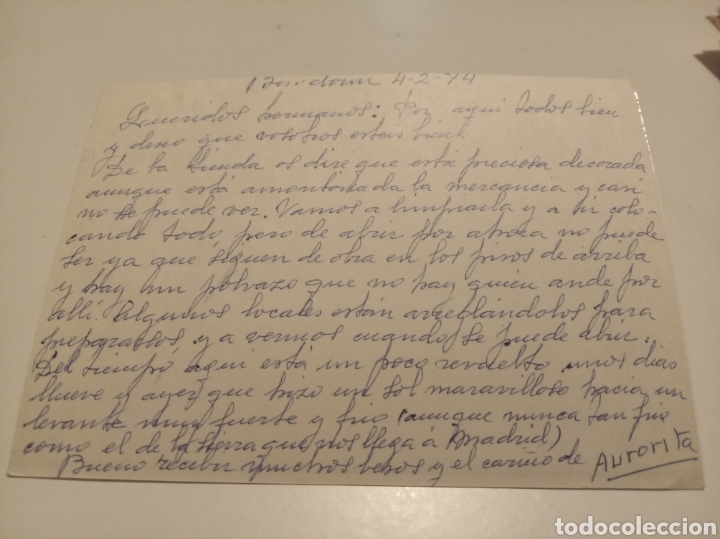 Benidorm 4-2-74
Queridos hermanos: Por aquí todos bien
y deseo que vosotros esteis bien.
De la tienda os dire que está preciosa decorada
aunque está amontonada la mercancia y casi
no se puede ver. Vamos a limpiarla y a ir colo-
cando todo, pero de abrir por ahora no puede
ser ya que siguen de obra en los pisos de arriba
y hay un polvazo que no hay quien ande por
allí. Algunos locales están arreglándolos para
prepararlos y a vermos cuando se puede abrir.
Del tiempo, aqui está un poco revuelto unos dias
llueve y ayer que hizo un sol maravilloso hacia un
levante muy fuerte y frio (aunque nunca tan frio
como el de la sierra que nos llega á Madrid)
Bueno recibir muchos besos y el cariño de Aurorita
todocoleccion
todocoleccion.net